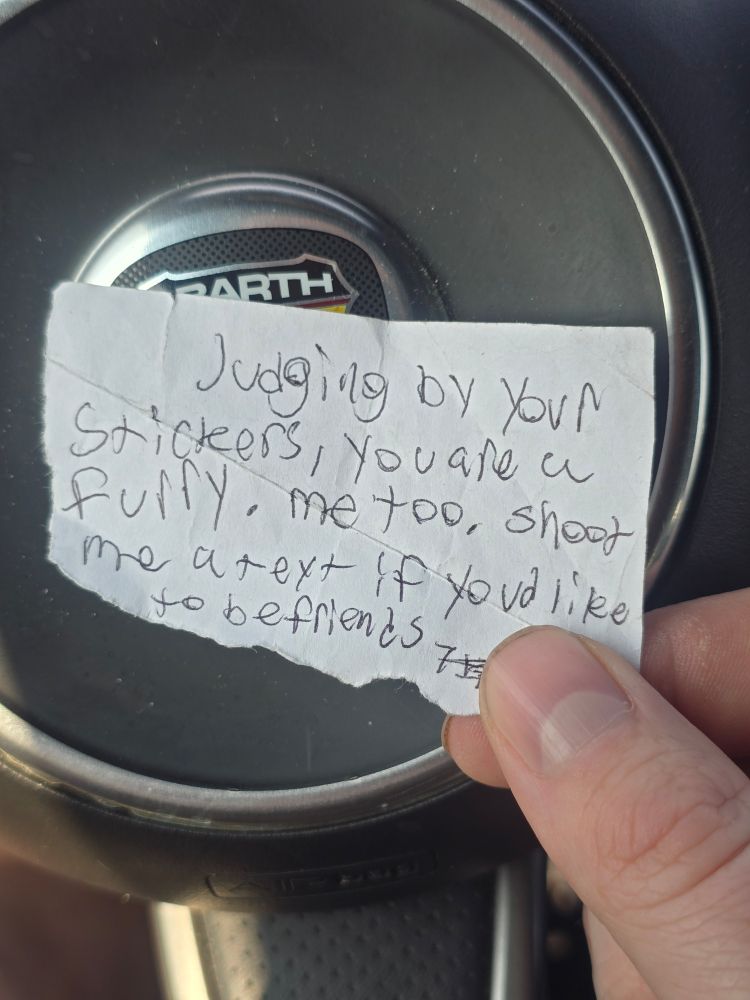 BARTH
Judging by your
Stickers, you are a
furry. me too. shoot
me a text if you'd like
to be friends
AIRBAG